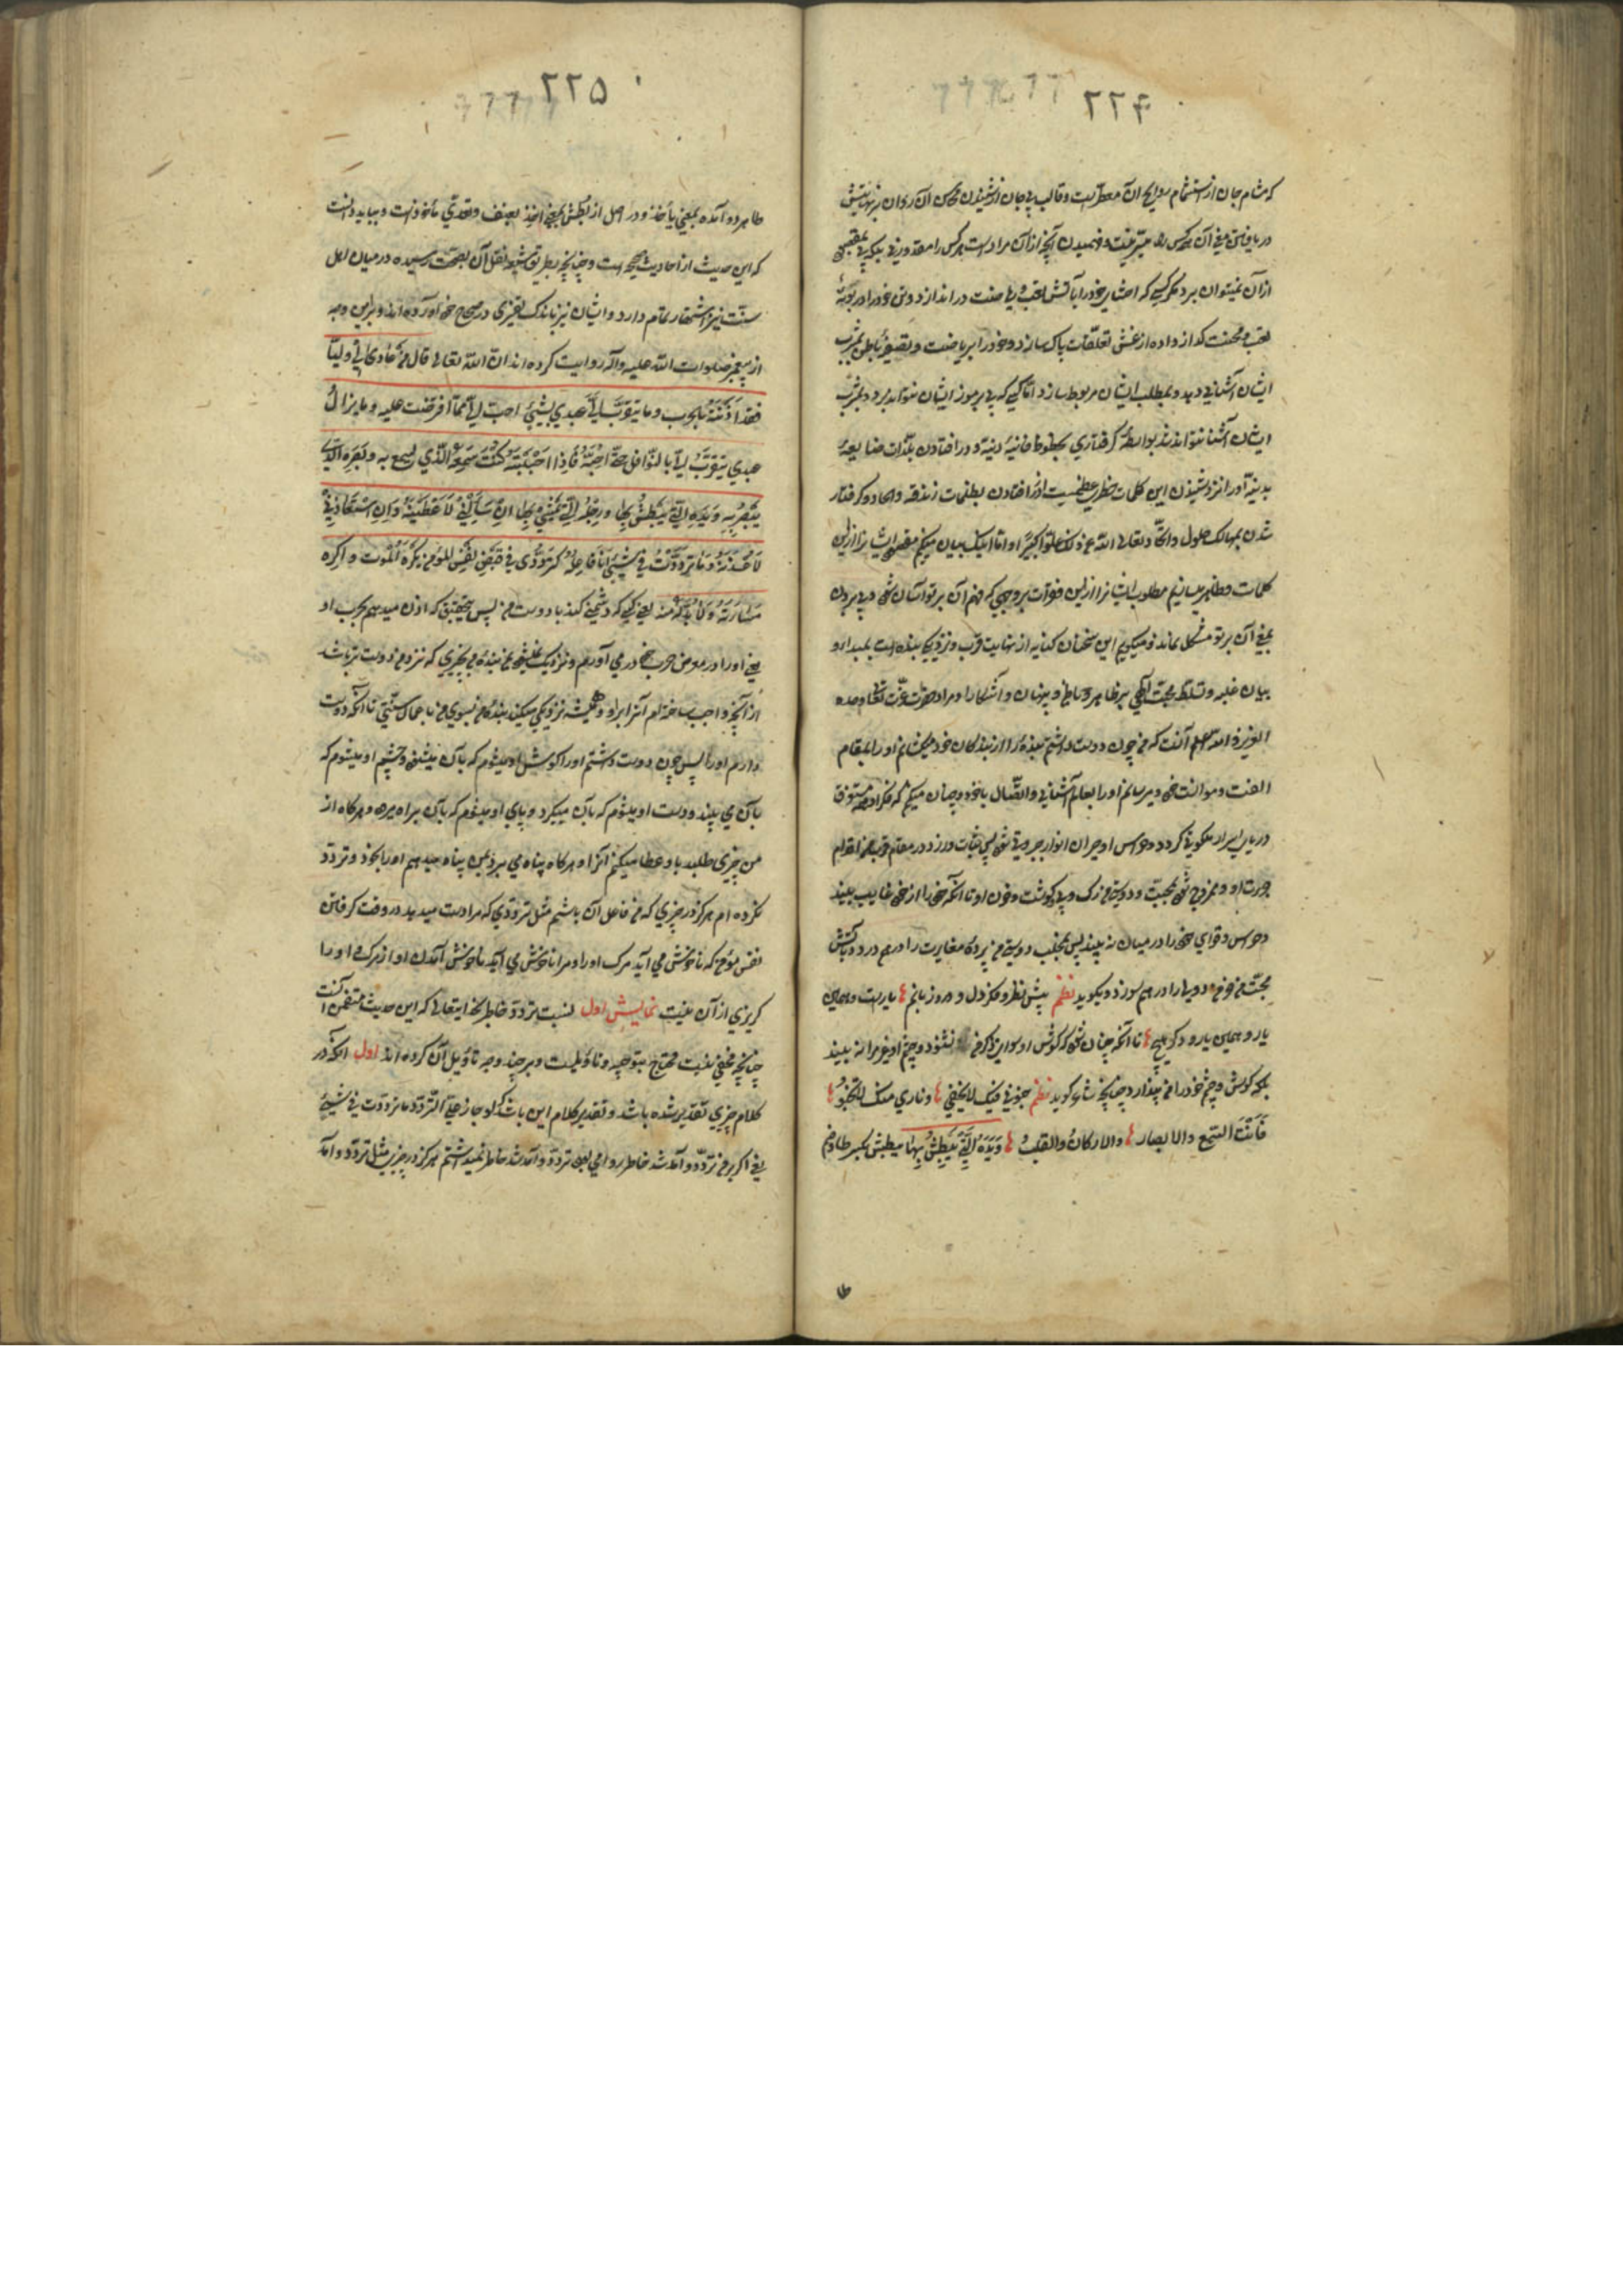 ۲۲۴
که مشام جان از استشمام روایح آن معطر است و قالب بی جان از شنیدن آن روان
دریافتن معنی آن هر کس را میسر نیست و فهمیدن آنچه از آن مرادست هر کس را مقدور نی
از آن نمیتوان برد مگر کسی که خود را بآتش تعب ریاضت در اندازد و تن خود را در بوته
تعب و محنت گداز داده از غش تعلقات پاک سازد و خود را بریاضت و تصفیه باطن بمشرب
ایشان آشنائی دهد و بمطلب ایشان مربوط سازد اما کسی که پی برموز ایشان نتواند برد و بمشرب
ایشان آشنا نتواند شد بواسطه گرفتاری بحظوظ فانیه دنیه و در افتادن بلذات
بدنیه او را نزد شنیدن این کلمات خطری عظیمست از افتادن بظلمات زندقه و الحاد و گرفتار
شدن بمهالک حلول و اتحاد تعالی الله عن ذلک علوا کبیرا و اما اینک بیان میکنم مقصود ایشانرا ازین
کلمات و ظاهر میسازیم مطلوب ایشانرا ازین فقرات بر وجهی که فهم آن بر تو آسان شود و پی بردن
بمعنی آن بر تو مشکل نماند و میگویم این سخنان کنایه از نهایت قرب و نزدیکی بنده است بمبدا و
بیان غلبه و تسلط محبت الهی بر ظاهر و باطن و پنهان و آشکارا و مراد حضرت عزت
اعلم آنست که من چون دوست داشتم بنده را از بندگان خود میکشانم او را بمقام
الفت و موانست خود و میرسانم او را بعالم آشنائی و اتصال با خود و چنان میکنم که فکر او مستغرق
دریای اسرار ملکوتی گردد و حواس او حیران انوار جبروتی شود پس ثبات ورزد در مقام قرب من اقدام
او و ممزوج شود بمحبت و دوستی من رگ و پی و گوشت و خون او تا آنکه خود را از خود غایب بیند
و حواس و قوای خود را در میان نه بیند پس بجلب دوستی من پرده مغایرت را در هم درد و بآتش
محبت من دویی را در هم سوزد و بگوید نظم پیش نظر و فکر دل و ورد زبانم یارست و همین
یار و همین یار و دگر هیچ تا آنکه چنان شود که گوش او سوای ذکر من نشنود و چشم او غیر مرا نه بیند
بلکه گوش و چشم خود را من پندارد چنانچه شاعر گوید نظم جنونی فیک لا یخفی و ناری منک لا تخبو
فانت السمع و الابصار و الارکان و القلب و یده التی یبطش بها یبطش بکسر طا و ضم
۲۲۵
طا هر دو آمده بمعنی یأخذ و در اصل از بطش بمعنی اخذ بعنف و تعدی مأخوذست و بباید دانست
که این حدیث از احادیث صحیحه است و چنانچه بطریق شیعه نقل آن بصحت رسیده در میان اهل
سنت نیز اشتهار تمام دارد و ایشان نیز باندک تغییری در صحاح خود آورده اند و برین وجه
از پیغمبر صلوات الله علیه و آله روایت کرده اند ان الله تعالی قال من عادی لی ولیا
فقد اذنته بالحرب و ما یتقرب الی عبدی بشیئ احب الی مما افترضت علیه و ما یزال
عبدی یتقرب الی بالنوافل حتی احبه فاذا احببته کنت سمعه الذی یسمع به و بصره الذی
یبصر به و یده التی یبطش بها و رجله التی یمشی بها ان سألنی لاعطینه و ان استعاذنی
لاعیذنه و ما ترددت فی شیئ انا فاعله کترددی فی قبض نفس المؤمن یکره الموت و اکره
مساءته و لا بد له منه یعنی کسی که دشمنی کند با دوست من پس بتحقیق که اذن میدهم بحرب او
یعنی او را در معرض حرب خود در می آورم و نزدیک نمیشود بمن بنده من بچیزی که نزد من دوست تر باشد
از آنچه واجب ساخته ام آنرا بر او و همیشه نزدیکی میکند بنده من بسوی من باعمال سنتی تا آنکه دوست
دارم او را پس چون دوست داشتم او را گوش او میشوم که بآن میشنود و چشم او میشوم که
بآن می بیند و دست او میشوم که بآن میگیرد و پای او میشوم که بآن براه میرود و هرگاه از
من چیزی طلبد باو عطا میکنم آنرا و هرگاه پناه می برد بمن پناه میدهم او را بخود و تردد
نکرده ام هرگز در چیزی که من فاعل آن باشم مثل ترددی که مرا دست میدهد در وقت گرفتن
نفس مؤمن که ناخوش می آید مرگ او را و مرا ناخوش می آید ناخوش آمدن او از مرگ و او را
گریزی از آن نیست نمایش اول نسبت تردد خاطر بخدایتعالی که این حدیث متضمن آنست
چنانچه مخفی نیست محتاج بتوجیه و تأویلست و بر چند وجه تأویل آن کرده اند اول آنکه در
کلام چیزی تقدیر شده باشد و تقدیر کلام این باشد که لو جاز علی التردد ما ترددت فی شیئ
یعنی اگر بر من تردد و آمد شد خاطر روا می بود تردد و آمد شد خاطر نمیداشتم هرگز در چیزی مثل تردد و آمد